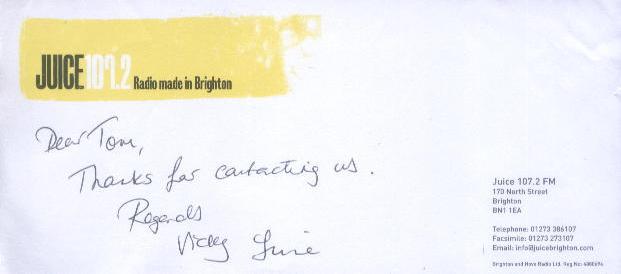 JUICE 107.2 Radio made in Brighton
Dear Tom,
Thanks for contacting us.
Regards
Vicky
Juice 107.2 FM
170 North Street
Brighton
BN1 1EA
Telephone: 01273 386107
Facsimile: 01273 273107
Email: info@juicebrighton.com
Brighton and Hove Radio Ltd. Reg No: 4080694